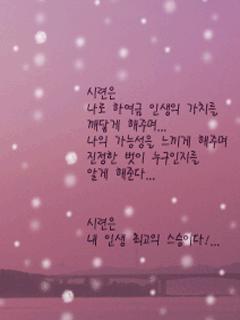 시련은
나로 하여금 인생의 가치를
깨닫게 해주며...
나의 가능성을 느끼게 해주며
진정한 벗이 누구인지를
알게 해준다...
시련은
내 인생 최고의 스승이다!...